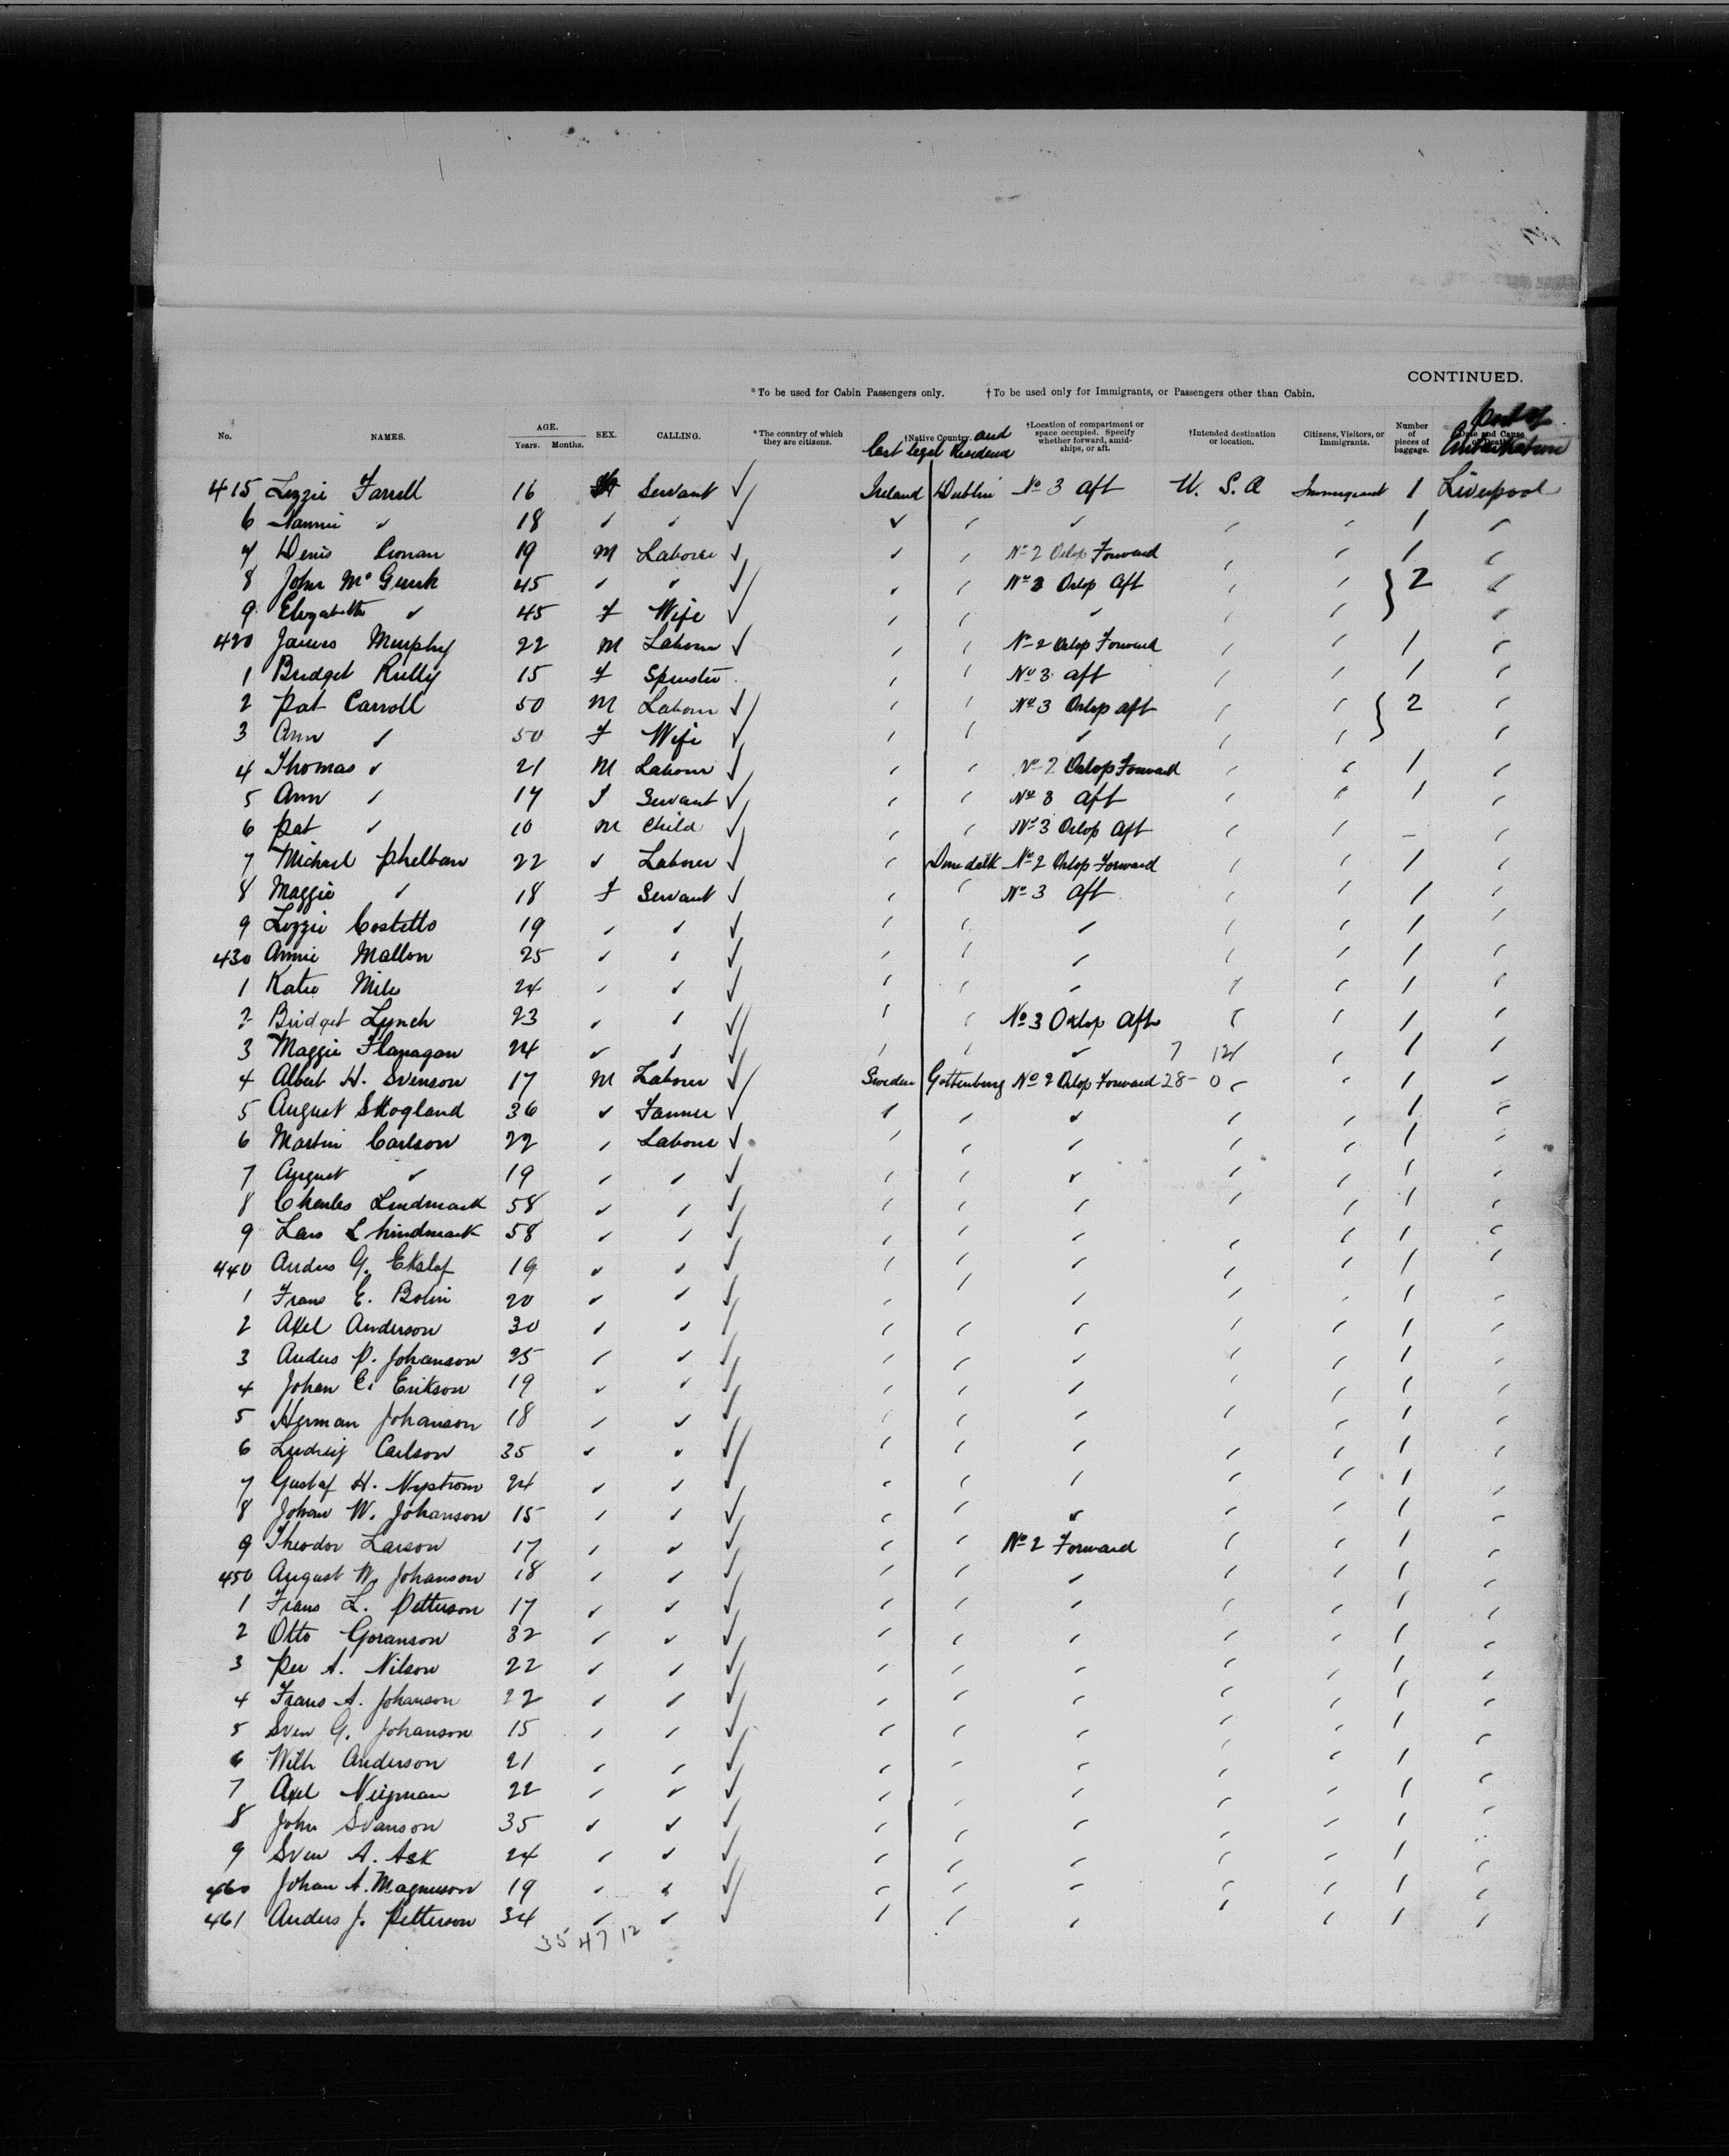 CONTINUED.
*To be used for Cabin Passengers only. †To be used only for Immigrants, or Passengers other than Cabin.
No. NAMES. AGE. Years. Months. SEX. CALLING. *The country of which they are citizens. †Native Country. and last legal Residence †Location of compartment or space occupied. Specify whether forward, amidships, or aft. †Intended destination or location. Citizens, Visitors, or Immigrants. Number of pieces of baggage. Date and Cause of Death. Port of Embarkation
415 Lizzie Farrell 16 Servant ✓ Ireland Dublin No 3 aft U. S. A Immigrant 1 Liverpool
6 Nannie " 18 " " ✓ " " " " " 1 "
7 Denis Cronan 19 M Laborer ✓ " " No 2 Orlop Forward " " 1 "
8 John McGurk 45 " " ✓ " " No 3 Orlop Aft " " } 2 "
9 Elizabeth " 45 F Wife ✓ " " " " " "
420 James Murphy 22 M Laborer ✓ " " No 2 Orlop Forward " " 1 "
1 Bridget Reilly 15 F Spinster " " No 3 aft " " 1 "
2 Pat Carroll 50 M Laborer ✓ " " No 3 Orlop aft " " } 2 "
3 Ann " 50 F Wife ✓ " " " " " "
4 Thomas " 21 M Laborer ✓ " " No 2 Orlop Forward " " 1 "
5 Ann " 17 F Servant ✓ " " No 3 aft " " 1 "
6 Pat " 10 M Child ✓ " " No 3 Orlop Aft " " – "
7 Michael Phelban 22 " Laborer ✓ " Dundalk No 2 Orlop Forward " " 1 "
8 Maggie " 18 F Servant ✓ " " No 3 aft " " 1 "
9 Lizzie Costello 19 " " ✓ " " " " " 1 "
430 Annie Mallon 25 " " ✓ " " " " " 1 "
1 Katie Miles 24 " " ✓ " " " " " 1 "
2 Bridget Lynch 23 " " ✓ " " No 3 Orlop Aft " " 1 "
3 Maggie Flanagan 24 " " ✓ " " " 7 12 " 1 "
4 Albert H. Svenson 17 M Laborer ✓ Sweden Gottenburg No 2 Orlop Forward 28-0 " " 1 "
5 August Skogland 36 " Farmer ✓ " " " " " 1 "
6 Martin Carlson 22 " Laborer ✓ " " " " " 1 "
7 August " 19 " " ✓ " " " " " 1 "
8 Charles Lindmark 58 " " ✓ " " " " " 1 "
9 Lars 58 " " ✓ " " " " " 1 "
440 Anders G. Eklof 19 " " ✓ " " " " " 1 "
1 Frans E. Bolin 20 " " ✓ " " " " " 1 "
2 Axel Anderson 30 " " ✓ " " " " " 1 "
3 Anders P. Johanson 25 " " ✓ " " " " " 1 "
4 Johan E. Erikson 19 " " ✓ " " " " " 1 "
5 Herman Johanson 18 " " ✓ " " " " " 1 "
6 Ludvig Carlson 35 " " ✓ " " " " " 1 "
7 Gustaf H. Nystrom 24 " " ✓ " " " " " 1 "
8 Johan W. Johanson 15 " " ✓ " " " " " 1 "
9 Theodor Larson 17 " " ✓ " " No 2 Forward " " 1 "
450 August W. Johanson 18 " " ✓ " " " " " 1 "
1 Frans L. Petterson 17 " " ✓ " " " " " 1 "
2 Otto Goranson 32 " " ✓ " " " " " 1 "
3 Per A. Nilson 22 " " ✓ " " " " " 1 "
4 Frans A. Johanson 22 " " ✓ " " " " " 1 "
5 Sven G. Johanson 15 " " ✓ " " " " " 1 "
6 Wilh Anderson 21 " " ✓ " " " " " 1 "
7 Axel 22 " " ✓ " " " " " 1 "
8 John Svanson 35 " " ✓ " " " " " 1 "
9 Sven A. Ask 24 " " ✓ " " " " " 1 "
460 Johan A. Magnuson 19 " " ✓ " " " " " 1 "
461 Anders J. Petterson 34 " " ✓ " " " " " 1 "
35 47 12